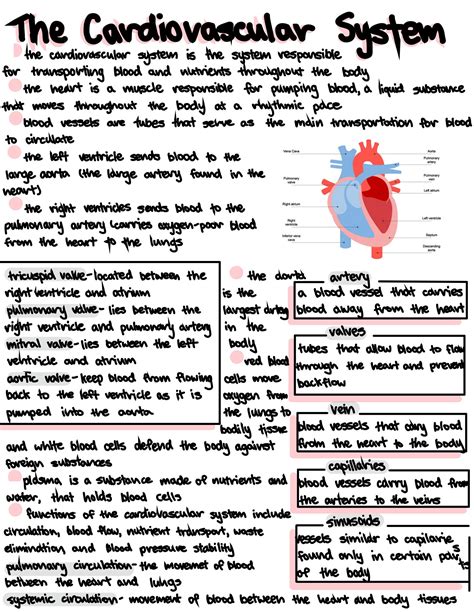 The Cardiovascular System
the cardiovascular system is the system responsible
for transporting blood and nutrients throughout the body
the heart is a muscle responsible for pumping blood, a liquid substance
that moves throughout the body at a rhythmic pace
blood vessels are tubes that serve as the main transportation for blood
to circulate
the left ventricle sends blood to the
large aorta (the large artery found in the
heart)
the right ventricles sends blood to the
pulmonary artery (carries oxygen-poor blood
from the heart to the lungs
Vena Cava
Pulmonary
valve
Right atrium
Right
ventricle
Inferior vena
cava
Aorta
Pulmonary
artery
Pulmonary
vein
Left atrium
Left ventricle
Septum
Descending
aorta
tricuspid valve- located between the
right ventricle and atrium
pulmonary valve- lies between the
right ventricle and pulmonary artery
mitral valve- lies between the left
ventricle and atrium
aortic valve- keep blood from flowing
back to the left ventricle as it is
pumped into the aorta
the aorta
is the
largest artery
in the
body
red blood
cells move
oxygen from
the lungs to
bodily tissue
and white blood cells defend the body against
foreign substances
plasma, is a substance made of nutrients and
water, that holds blood cells
functions of the cardiovascular system include
circulation, blood flow, nutrient transport, waste
elimination, and blood pressure stability
pulmonary circulation- the movement of blood
between the heart and lungs
systemic circulation- movement of blood between the heart and body tissues
artery
a blood vessel that carries
blood away from the heart
valves
tubes that allow blood to flow
through the heart and prevent
backflow
vein
blood vessels that carry blood
from the heart to the body
capillaries
blood vessels carry blood from
the arteries to the veins
sinusoids
vessels similar to capilarie
found only in certain parts
of the body